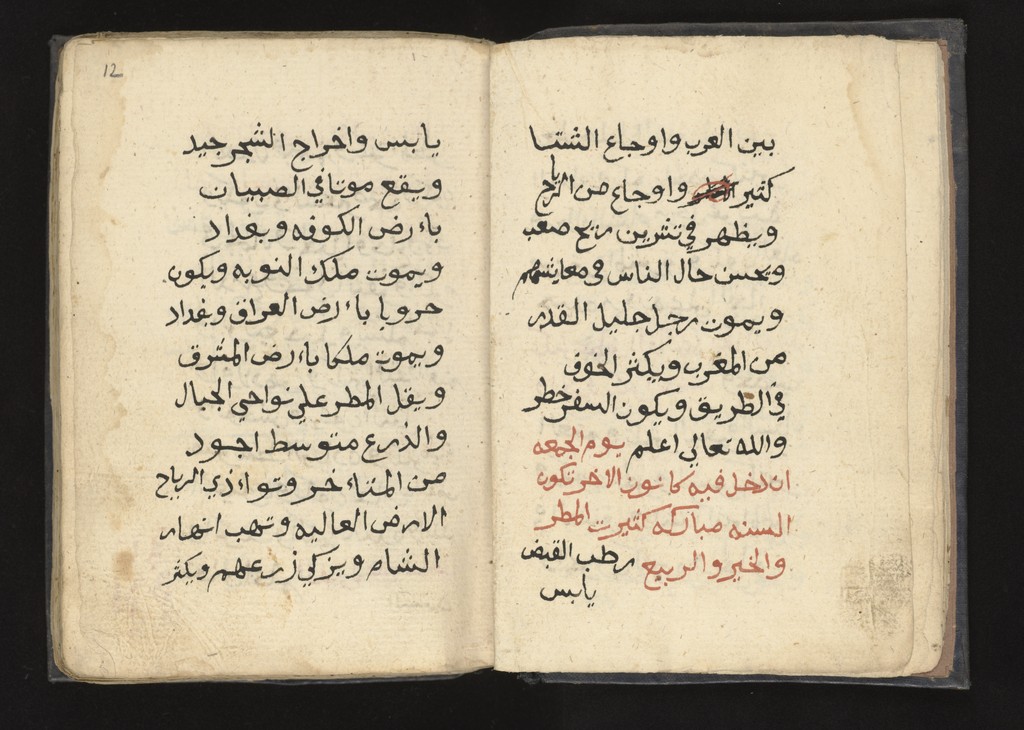 بين العرب واوجاع الشتا
كثير واوجاع من الرياح
ويظهر في تشرين ريح صعب
ويحسن حال الناس في معايشهم
ويموت رجل جليل القدر
من المغرب ويكثر الخوف
في الطريق ويكون السفر خطر
والله تعالي اعلم يوم الجمعه
ان دخل فيه كانون الاخر تكون
السنه مباركه كثيرت المطر
والخير والربيع رطب القبض
يابس
12
يابس واخراج الشجر جيد
ويقع موتا في الصبيان
باءرض الكوفه وبغداد
ويموت ملك النوبه ويكون
حروبا باءرض العراق وبغداد
ويموت ملكا باءرض المشرق
ويقل المطر علي نواحي الجبال
والذرع متوسط اجود
من المتاءخر وتواءذي الرياح
الارض العاليه وتهب انهار
الشام ويزكي زرعهم ويكثر